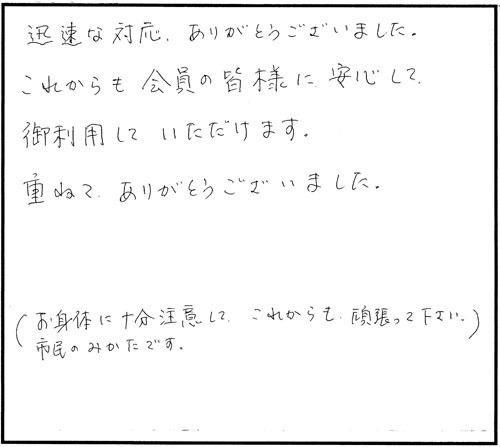 迅速な対応、ありがとうございました。
これからも会員の皆様に安心して、
御利用していただけます。
重ねて、ありがとうございました。
(お身体に十分注意して、これからも、頑張って下さい。)
市民のみかたです。